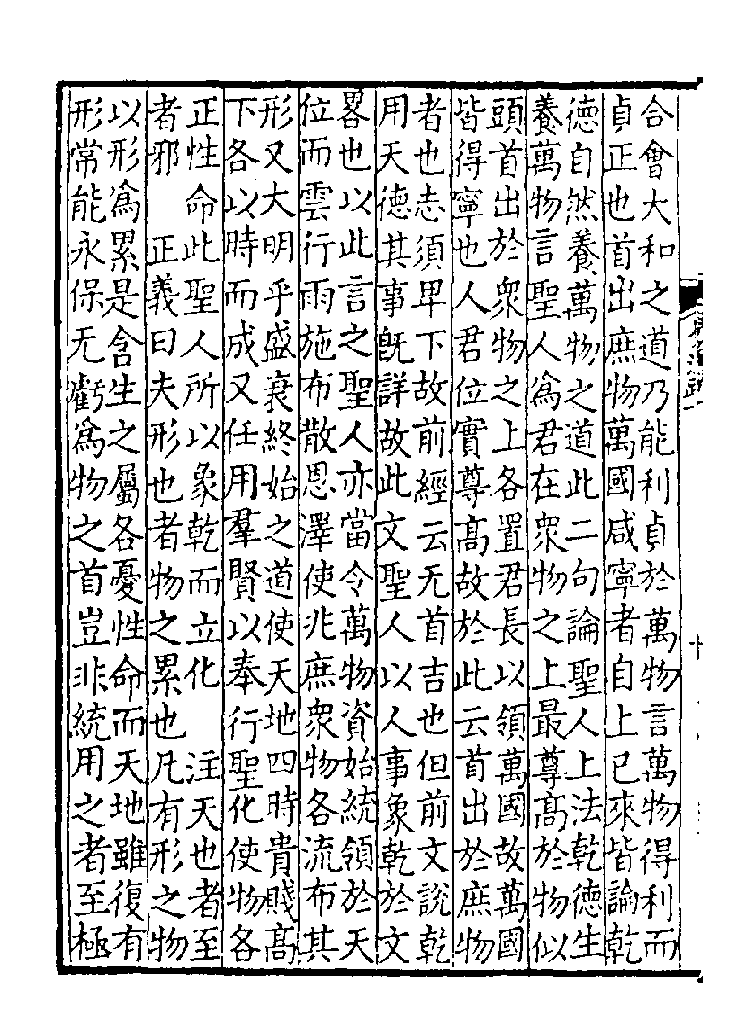 合會大和之道乃能利貞於萬物言萬物得利而
貞正也首出庶物萬國咸寧者自上已來皆論乾
德自然養萬物之道此二句論聖人上法乾德生
養萬物言聖人為君在衆物之上最尊髙於物似
頭首出於衆物之上各置君長以領萬國故萬國
皆得寧也人君位實尊髙故於此云首出於庶物
者也志須卑下故前經云无首吉也但前文說乾
用天德其事旣詳故此文聖人以人事象乾於文
畧也以此言之聖人亦當令萬物資始統領於天
位而雲行雨施布散恩澤使兆庶衆物各流布其
形又大明乎盛衰終始之道使天地四時貴賤髙
下各以時而成又任用羣賢以奉行聖化使物各
正性命此聖人所以象乾而立化　注天也者至
者邪　正義曰夫形也者物之累也凡有形之物
以形爲累是含生之屬各憂性命而天地雖復有
形常能永保无虧爲物之首豈非統用之者至極